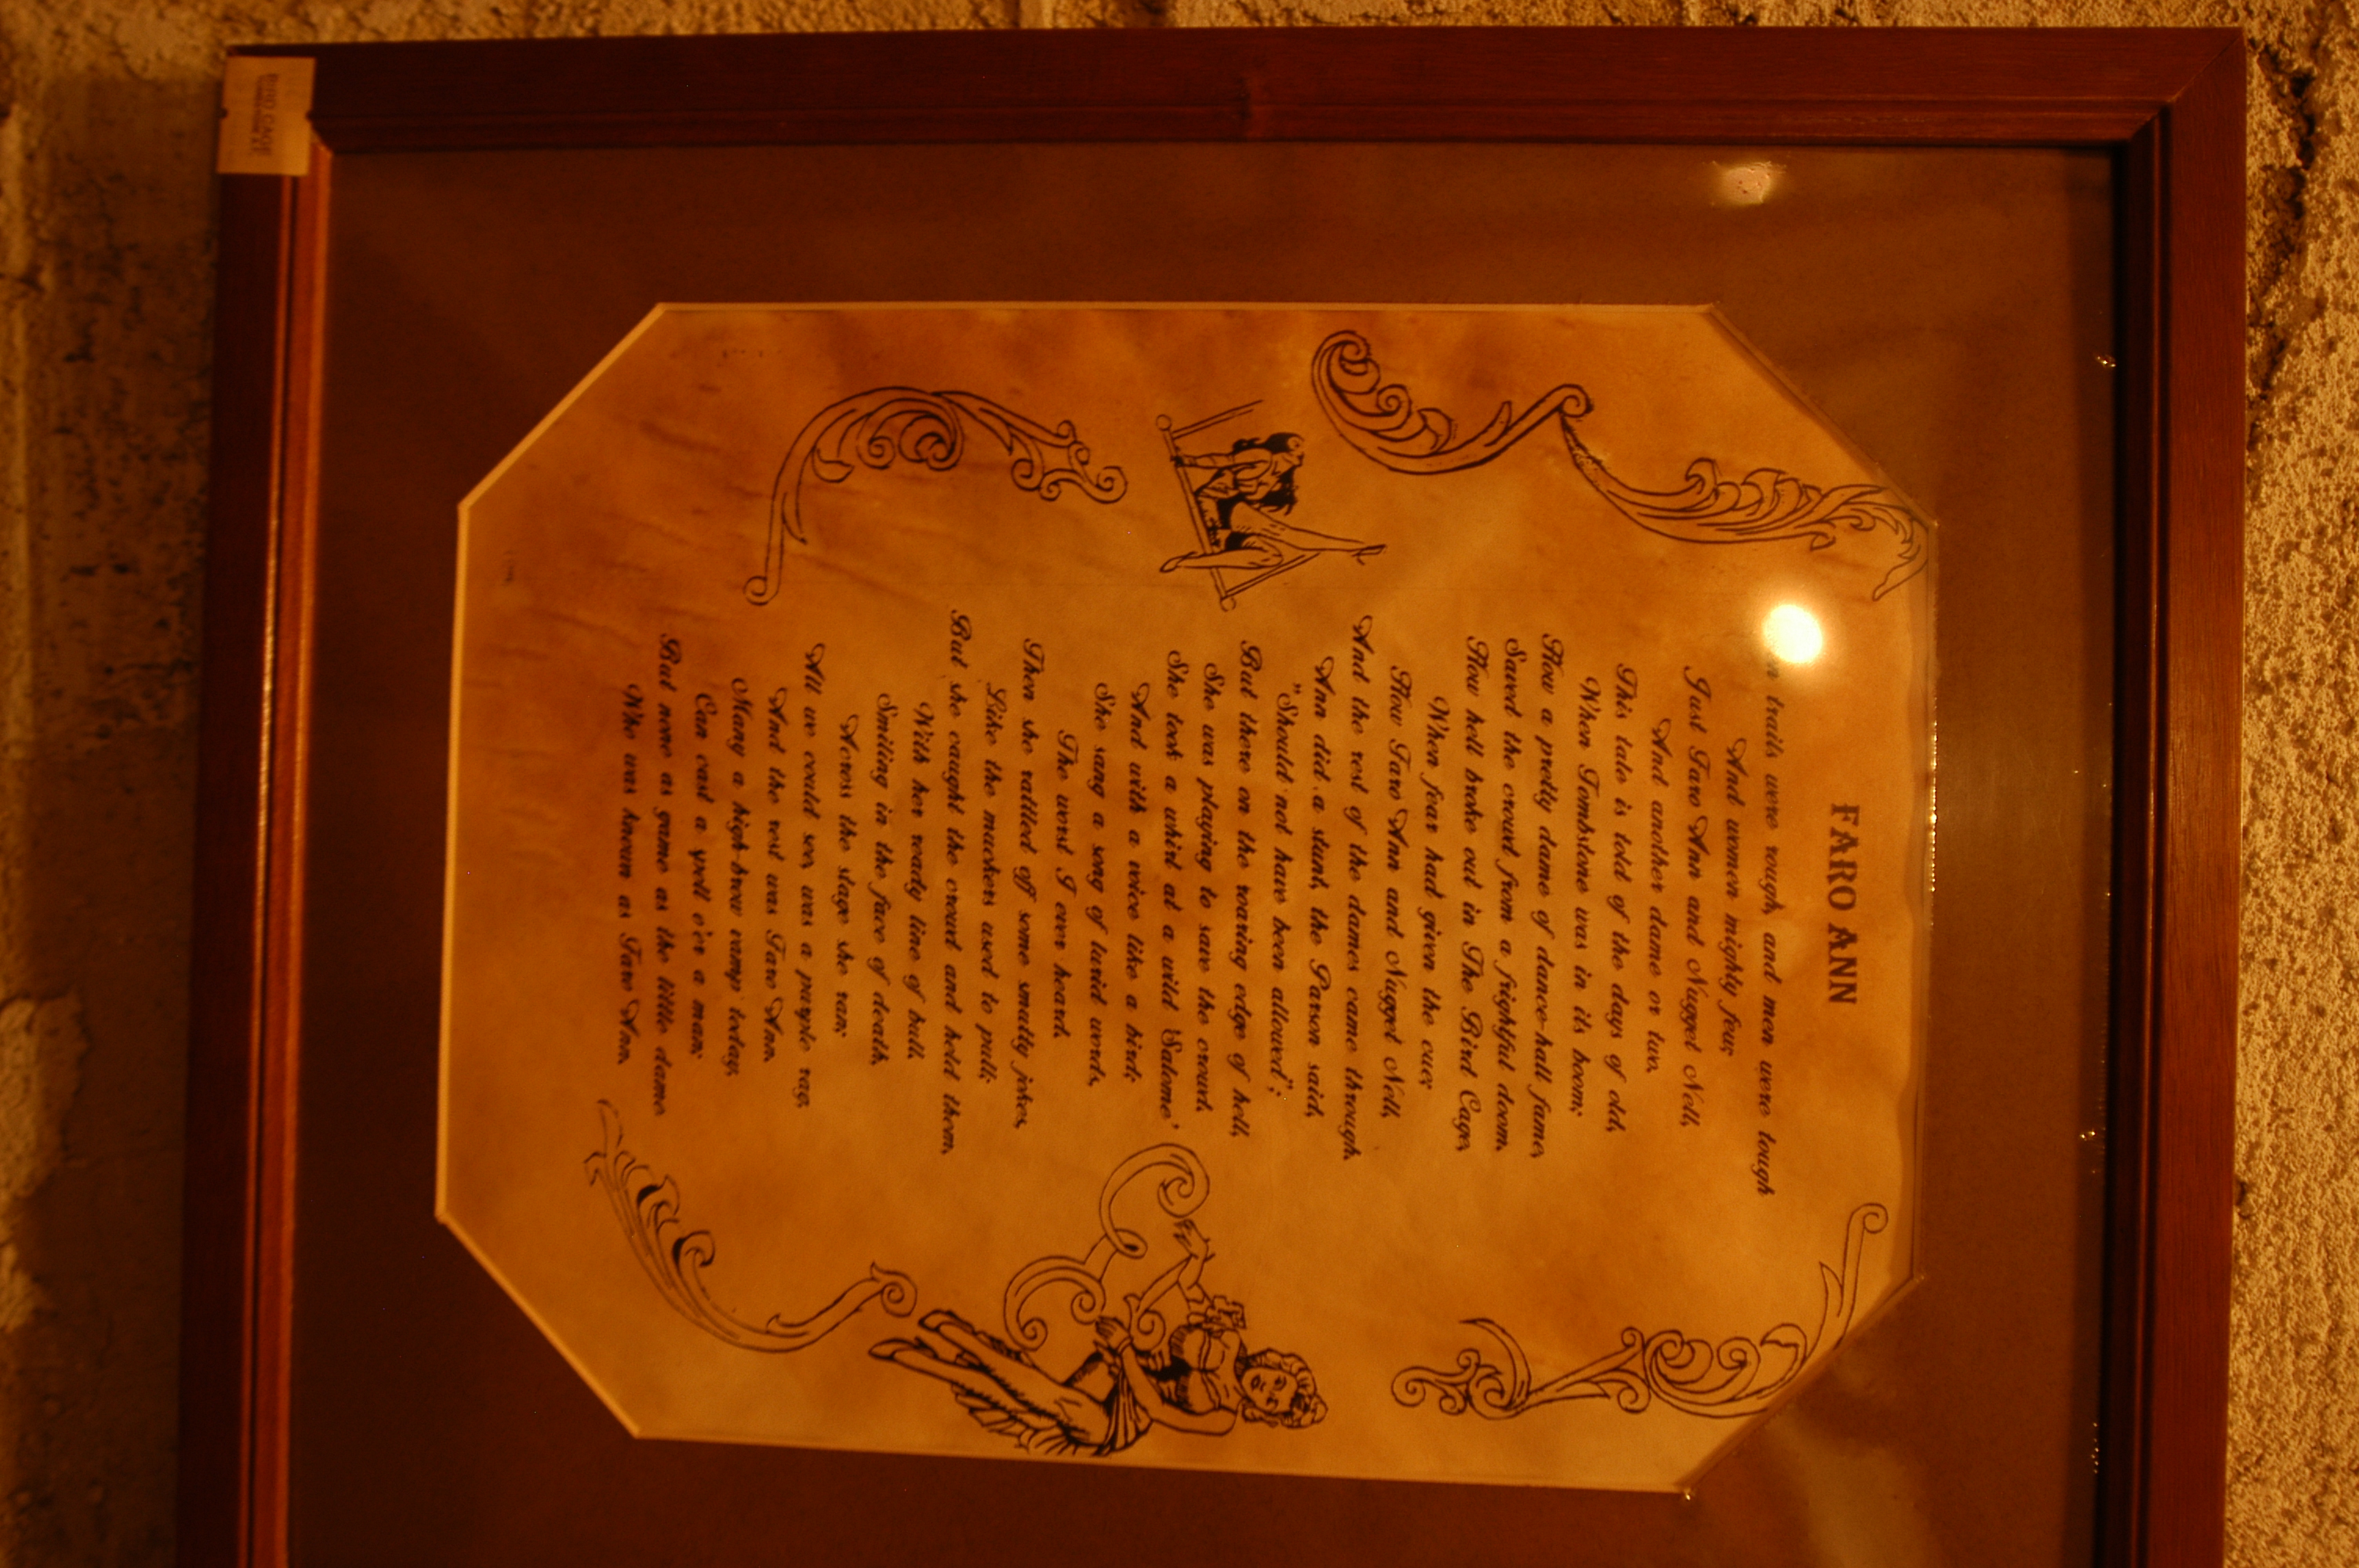 FARO ANN
trails were rough, and men were tough
And women mighty few;
Just Faro Ann and Nugget Nell,
And another dame or two.
This tale is told of the days of old,
When Tombstone was in its boom;
How a pretty dame of dance-hall fame,
Saved the crowd from a frightful doom.
How hell broke out in The Bird Cage,
When fear had given the cue;
How Faro Ann and Nugget Nell,
And the rest of the dames came through.
Ann did a stunt, the Parson said,
"Should not have been allowed";
But there on the roaring edge of hell,
She was playing to save the crowd.
She took a whirl at a wild 'Salome'
And with a voice like a bird;
She sang a song of lurid words,
The worst I ever heard.
Then she rattled off some smutty jokes,
Like the muckers used to pull;
But she caught the crowd and held them,
With her ready line of bull.
Smiling in the face of death,
Across the stage she ran;
All we could see, was a purple rag,
And the rest was Faro Ann.
Many a high-brow vamp today,
Can cast a spell o'er a man;
But none as game as the little dame
Who was known as Faro Ann.